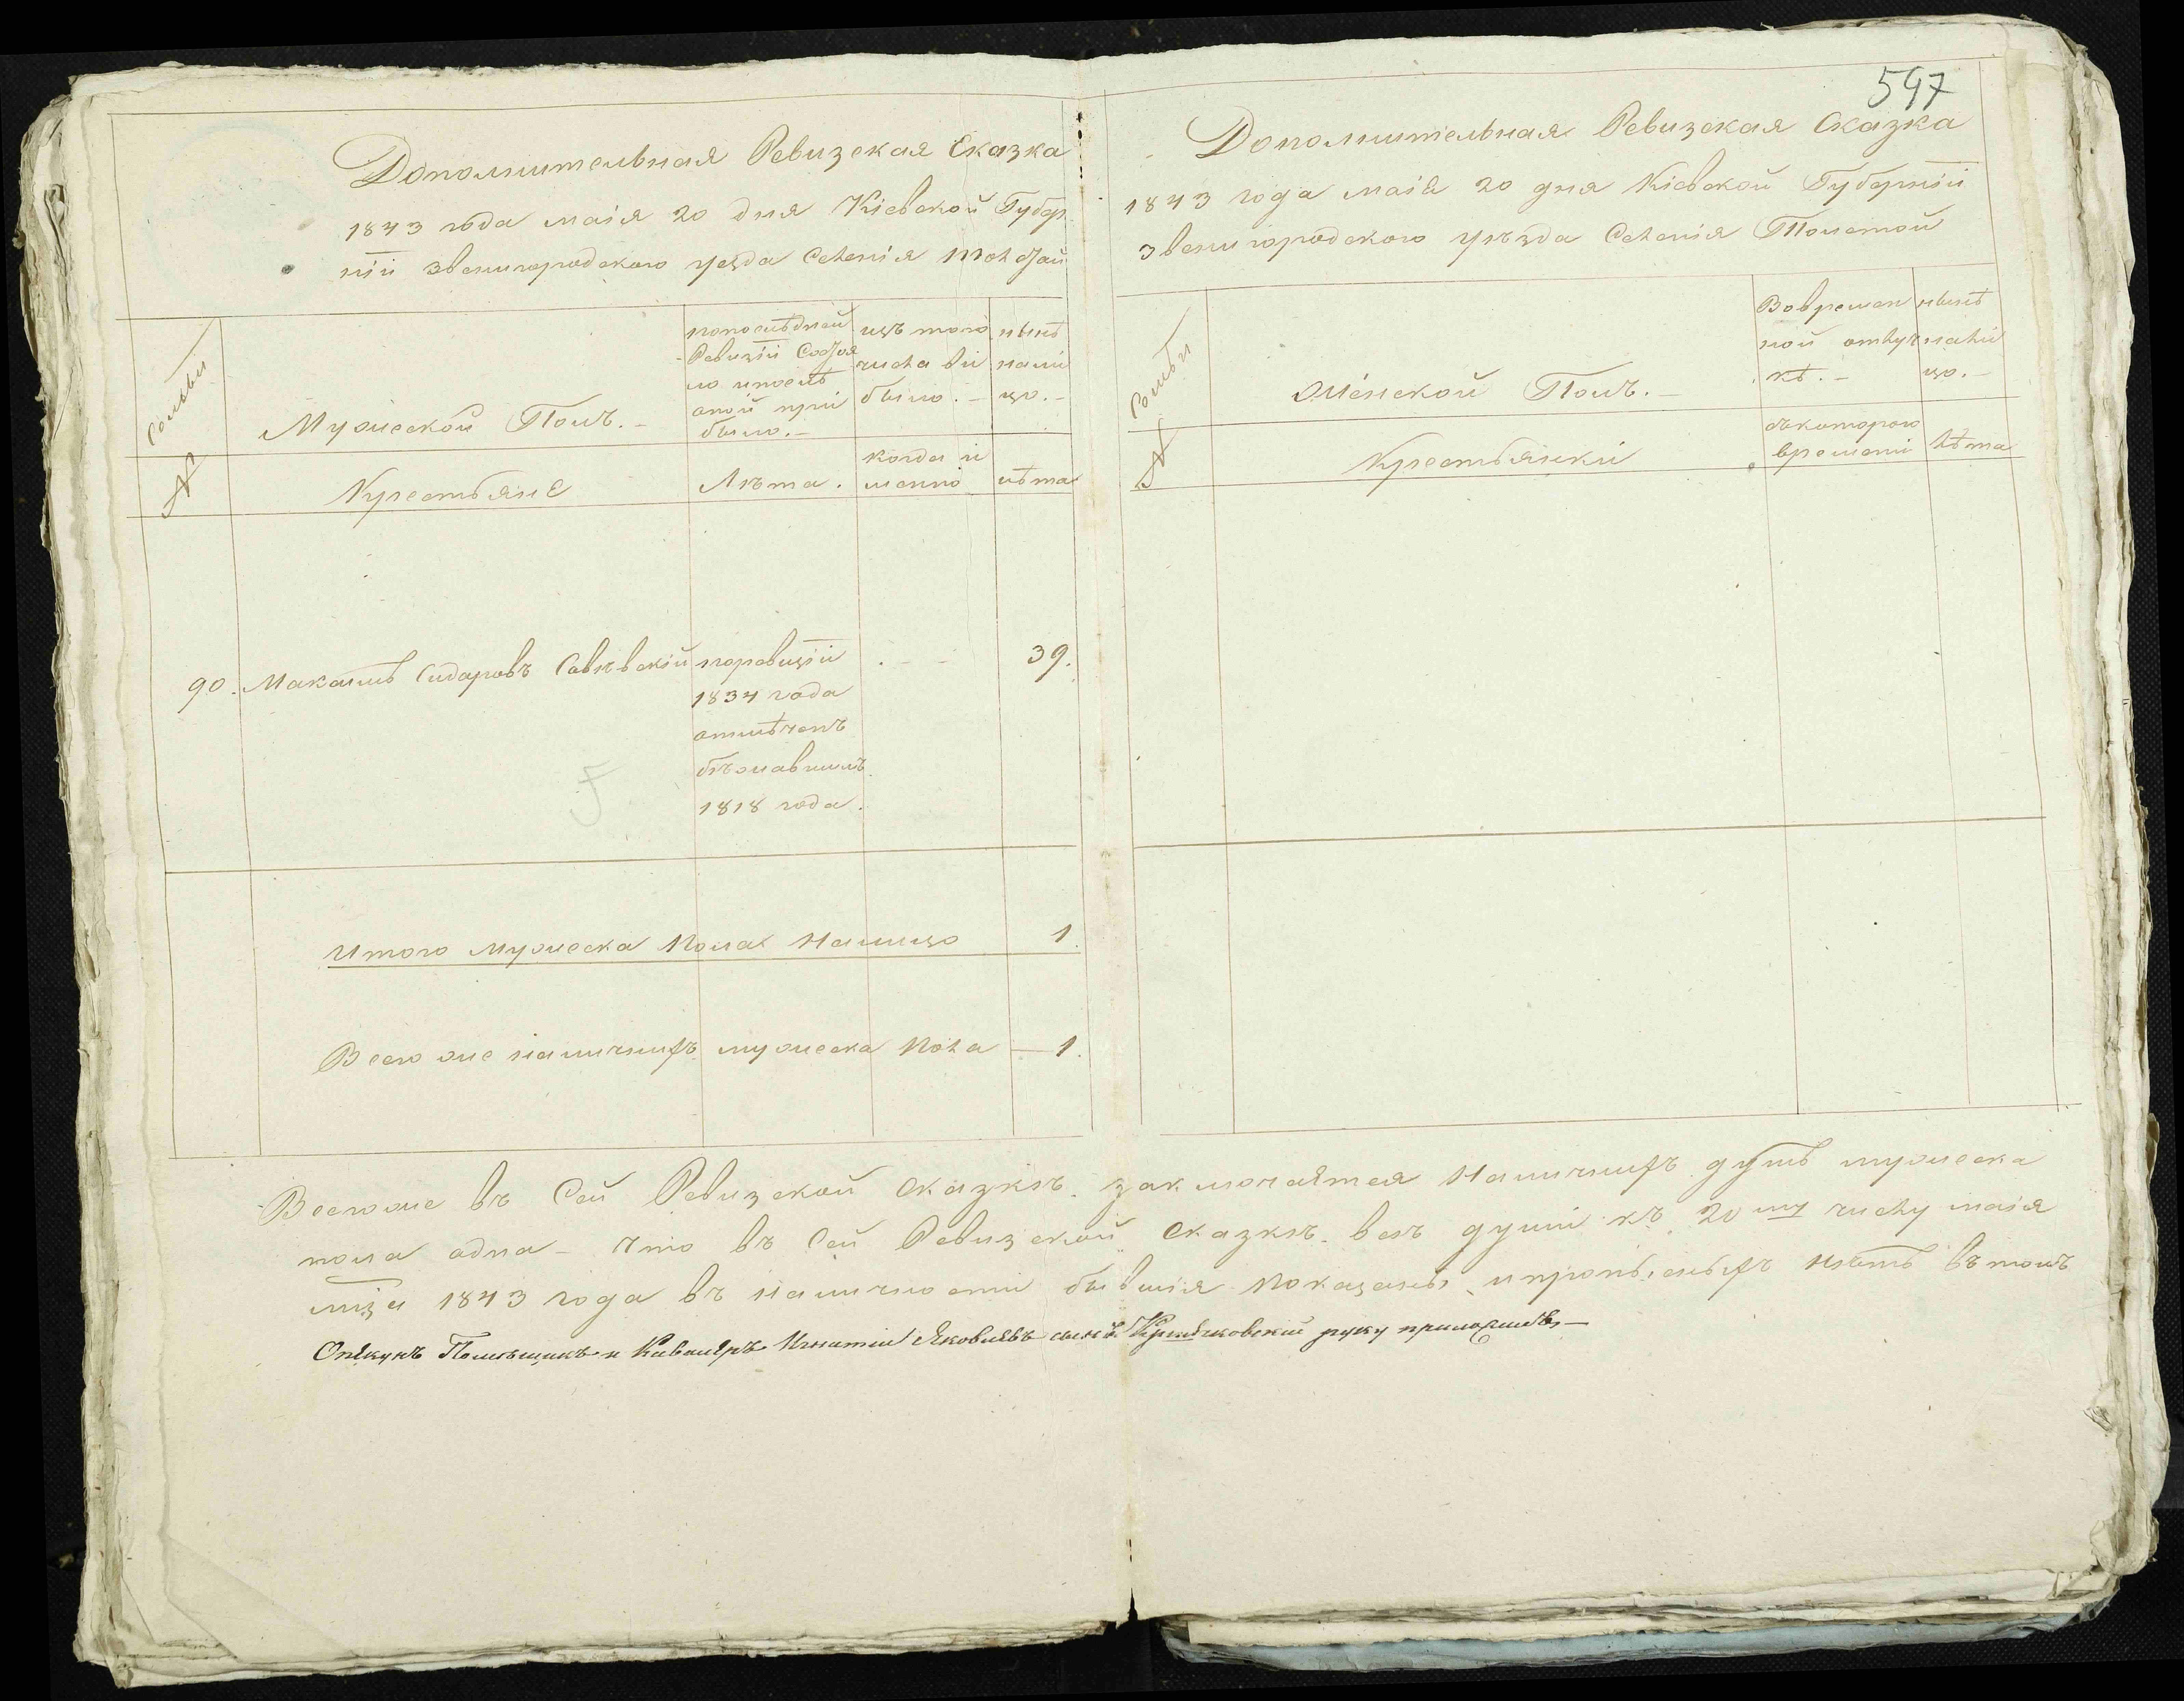 597
Дополнительная Ревизская Сказка
1843 года маія 20 дня Кіевской Губер
ніи Звенигородского уезда Селенія Толстой
Сѣмьи
№
Мужеской Полъ.-
Крестьяне
попослѣдней
Ревизіи Состоя
ло ипослѣ
оной при
было.-
Лѣта.
изъ того
числа вы
было.-
когда и
менно
нынѣ
нали
цо.-
лѣта
90. Макаимъ Сидоровъ Савѣвскій поревизіи - 39.
1834 года
отмѣченъ
бѣжавшимъ
1818 года.
Итого Мужеска Пола Налицо 1.
Всего же наличныхъ мужеска Пола — 1.
Дополнительная Ревизская Сказка
1843 года маія 20 дня Кіевской Губерніи
Звенигородского уѣзда Селенія Толстой
Сѣмьи
№
Женской Полъ.-
Крестьянки
Вовремен
ной отлуч
кѣ.-
съкоторого
времени
нынѣ
нали
цо.-
лѣта
Всегоже въ Сей Ревизской Сказкѣ заключается Наличныхъ душъ мужеска
пола одна - что въ Сей Ревизской Сказкѣ всѣ души къ 20му числу маія
1843 года въ наличности бывшія Показаны, ипропи,сныхъ нѣтъ вътомъ
Опекунъ Помѣщикъ и Кавалеръ Игнатій Яковлевъ сынъ руку приложилъ—